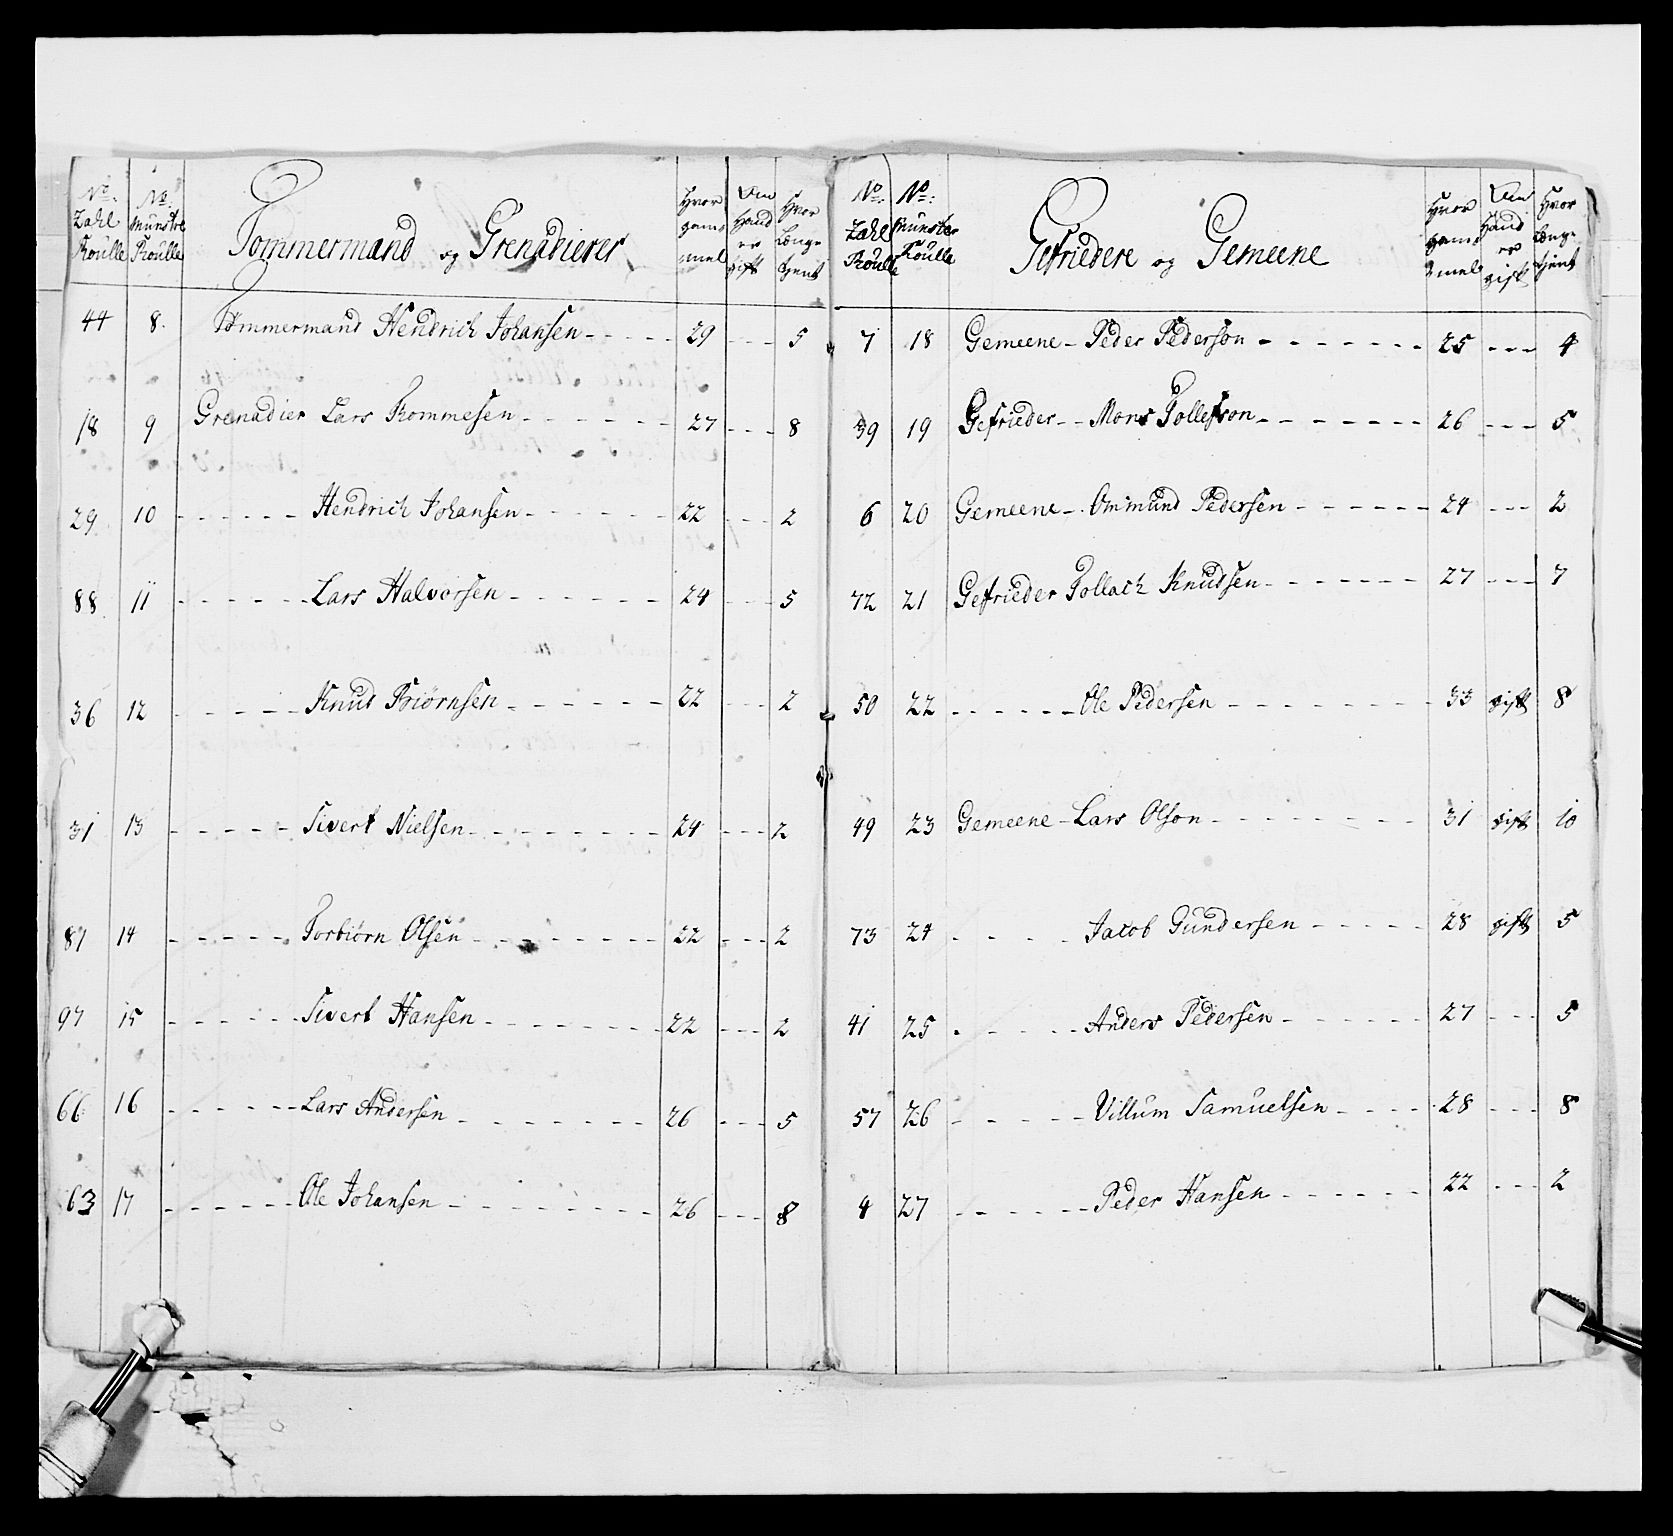 No: Zahl Roulle
No: Munstre Roulle
Tømmermand og Grenadierer
Hvor gam mel
Om Hand er gift
Hvor Længe tjent
44 8. Tømmermand Hendrich Johansen - - - - - 29 - - - 5
18 9 Grenadier Lars Thommesen - - - - - - 27 - - - 8
29 10 - - - - - - Hendrich Johansen - - - - - - 22 - - - 2
88 11 - - - - - - Lars Halvorsen - - - - - - 24 - - - 5
36 12 - - - - - - Knud Biørnsen - - - - - - 22 - - - 2
31 13 - - - - - - Sivert Nielsen - - - - - - - - 24 - - - 2
87 14 - - - - - - Torbiørn Olsen - - - - - - - - 22 - - - 2
97 15 - - - - - - Sivert Hansen - - - - - - - - 22 - - - 2
66 16 - - - - - - Lars Andersen - - - - - - - - 26 - - - 5
63 17 - - - - - - Ole Johansen - - - - - - - - - 26 - - - 8
No: Zahl Roulle
No: Munster Roulle
Gefriedere og Gemeene
Hvor gam mel
Om Hand er gift
Hvor Længe tjent
7 18 Gemeene - Peder Pederson - - - - - - - 25 - - - 4
39 19 Gefrieder - - Mons Tollefson - - - - - - - 26 - - - 5
6 20 Gemeene - Ommund Pedersen - - - - - - 24 - - - 2
72 21 Gefrieder Tollach Knudsen - - - - - - - 27 - - - 7
50 22 - - - - - - Ole Pedersen - - - - - - - - - 33 gift 8
49 23 Gemeene - Lars Olson - - - - - - - - 31 gift 10
73 24 - - - - Jacob Gundersen - - - - - 28 gift 5
41 25 - - - - - Anders Pedersen - - - - - - 27 - - - 5
57 26 - - - - - Villum Samuelsen - - - - 28 - - - 8
4 27 - - - - - - Peder Hansen - - - - - - 22 - - - 2